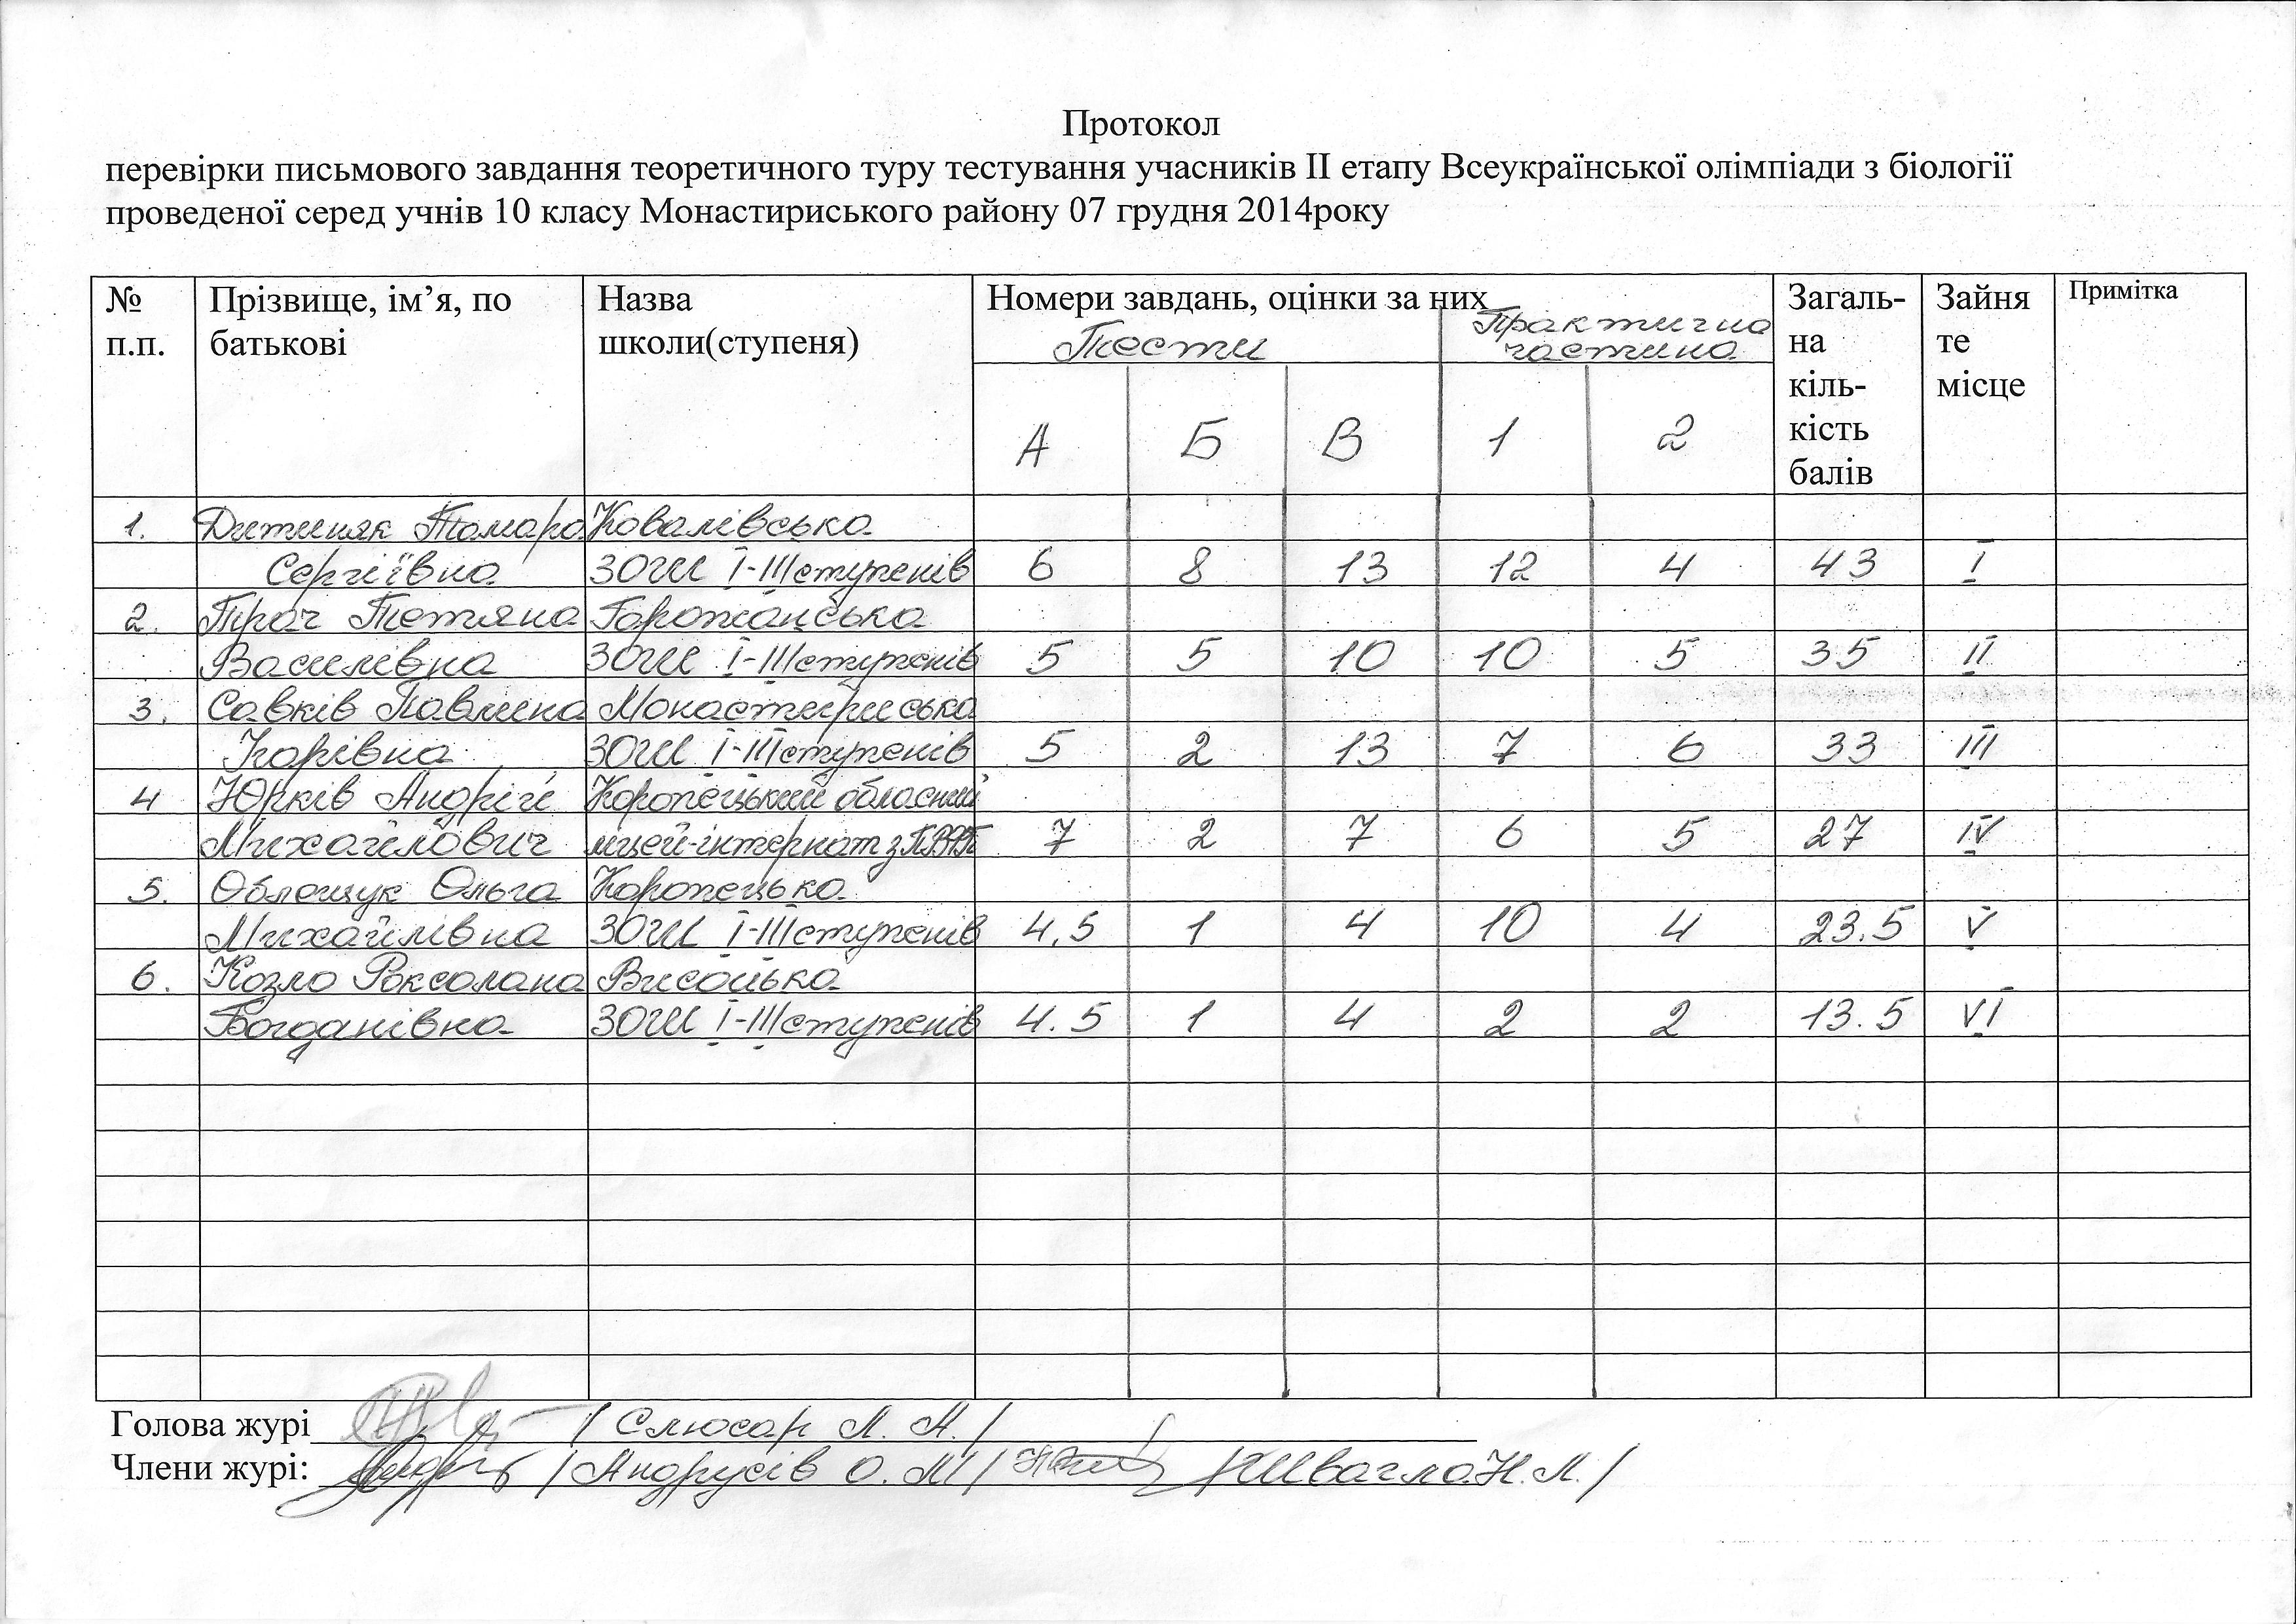 Протокол
перевірки письмового завдання теоретичного туру тестування учасників ІІ етапу Всеукраїнської олімпіади з біології
проведеної серед учнів 10 класу Монастириського району 07 грудня 2014року
№ п.п. Прізвище, ім’я, по батькові Назва школи(ступеня) Номери завдань, оцінки за них Загаль-на кіль-кість балів Зайня те місце Примітка
Тести Практична частина
А Б В 1 2
1. Дитиняк Тамара Ковалівська
Сергіївна ЗОШ І-ІІІ ступенів 6 8 13 12 4 43 І
2. Трач Тетяна Горожанська
Василівна ЗОШ І-ІІІ ступенів 5 5 10 10 5 35 ІІ
3. Савків Павлина Монастириська
Ігорівна ЗОШ І-ІІІ ступенів 5 2 13 7 6 33 ІІІ
4 Юрків Андрій Коропецький обласний
Михайлович ліцей-інтернат з 7 2 7 6 5 27 IV
5. Облещук Ольга Коропецька
Михайлівна ЗОШ І-ІІІ ступенів 4,5 1 4 10 4 23.5 V
6. Козло Роксолана Висоцька
Богданівна ЗОШ І-ІІІ ступенів 4.5 1 4 2 2 13.5 VI
Голова журі / Слюсар Л. М. /
Члени журі: / Андрусів О. М / / Швагла Н. М. /